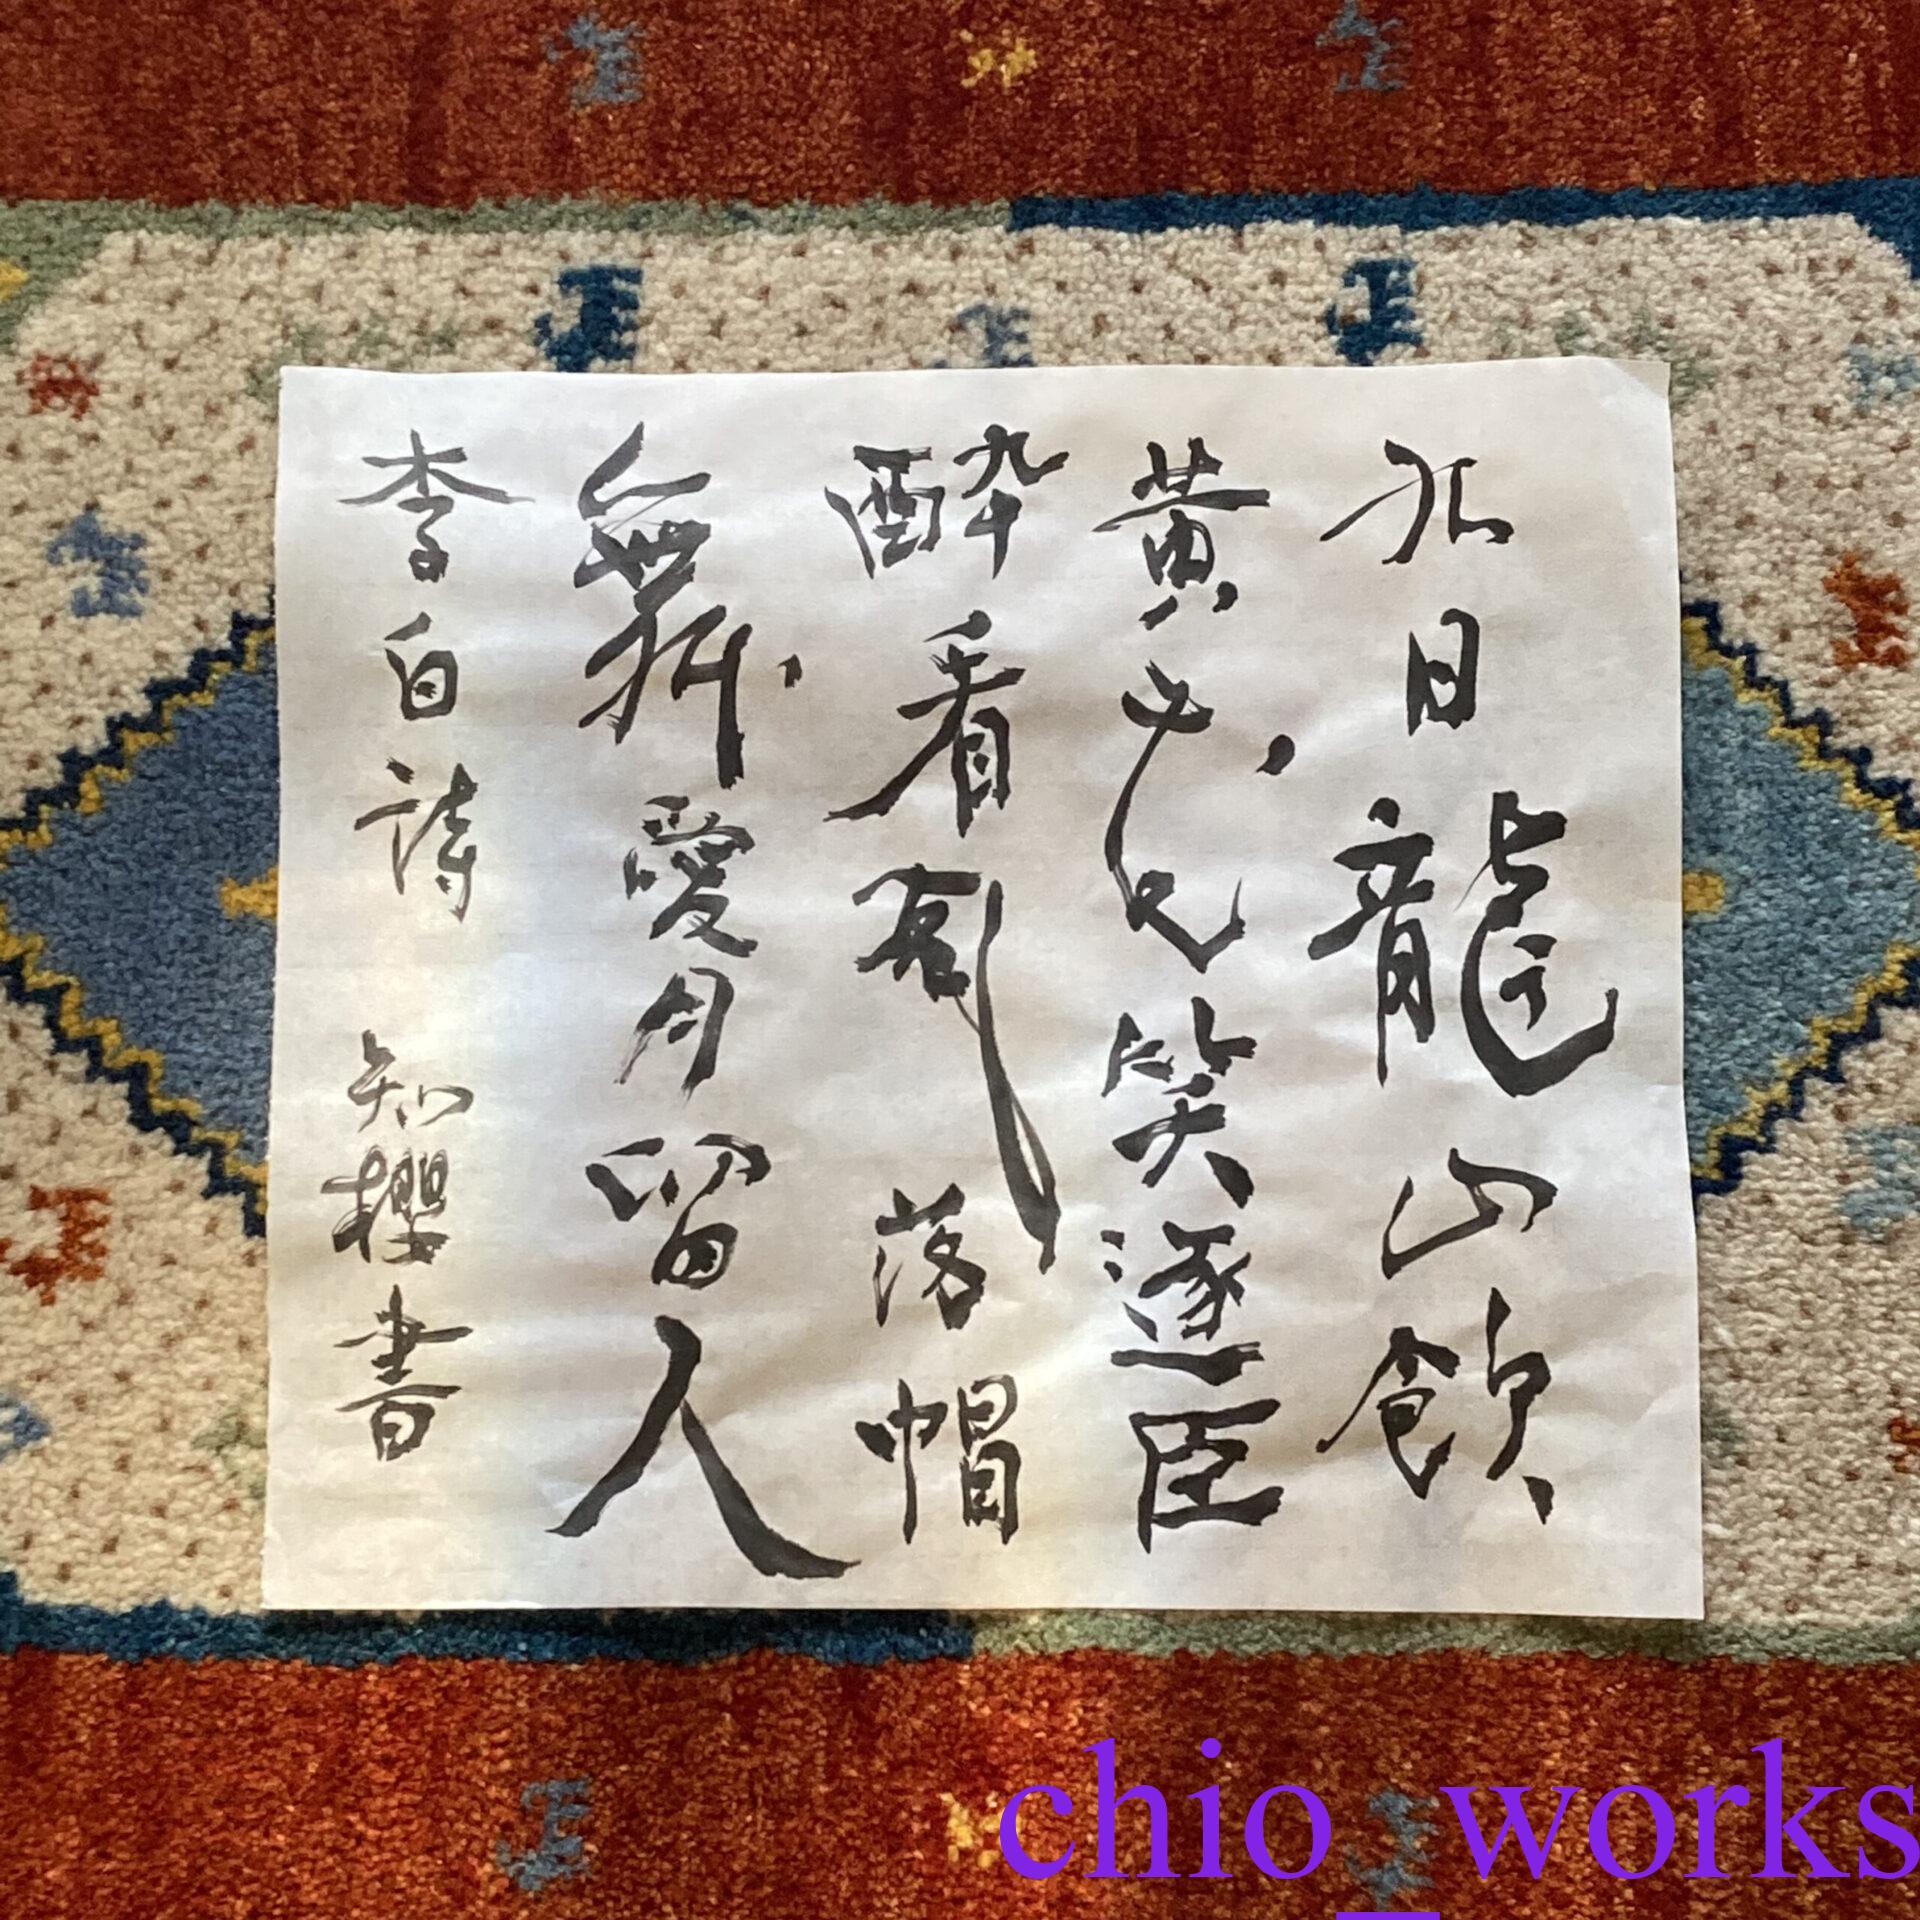 九日龍山飲
黄花笑逐臣
醉看風落帽
舞愛月留人
李白詩 知櫻書
chio_works